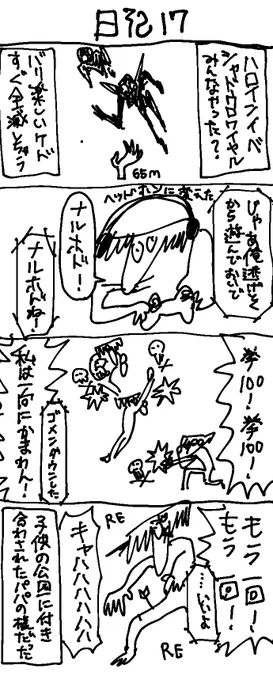 日記17
ハロインイベ
シャドウロワイヤル
みんなやった?
バリ楽しいケド
すぐ全滅しちゃう
65m
ヘッドホンに変えた
じゃあ俺逃げっ
から遊んでおいで
ナルホド!
ナルホドね!
拳100!拳100!
ゴメンダウンした
私は一向にかまわん!
もう一回!
もう一回!
RE
…いいよ
キャハハハハハハ
RE
子供の公園に付き
合わされたパパの様だった